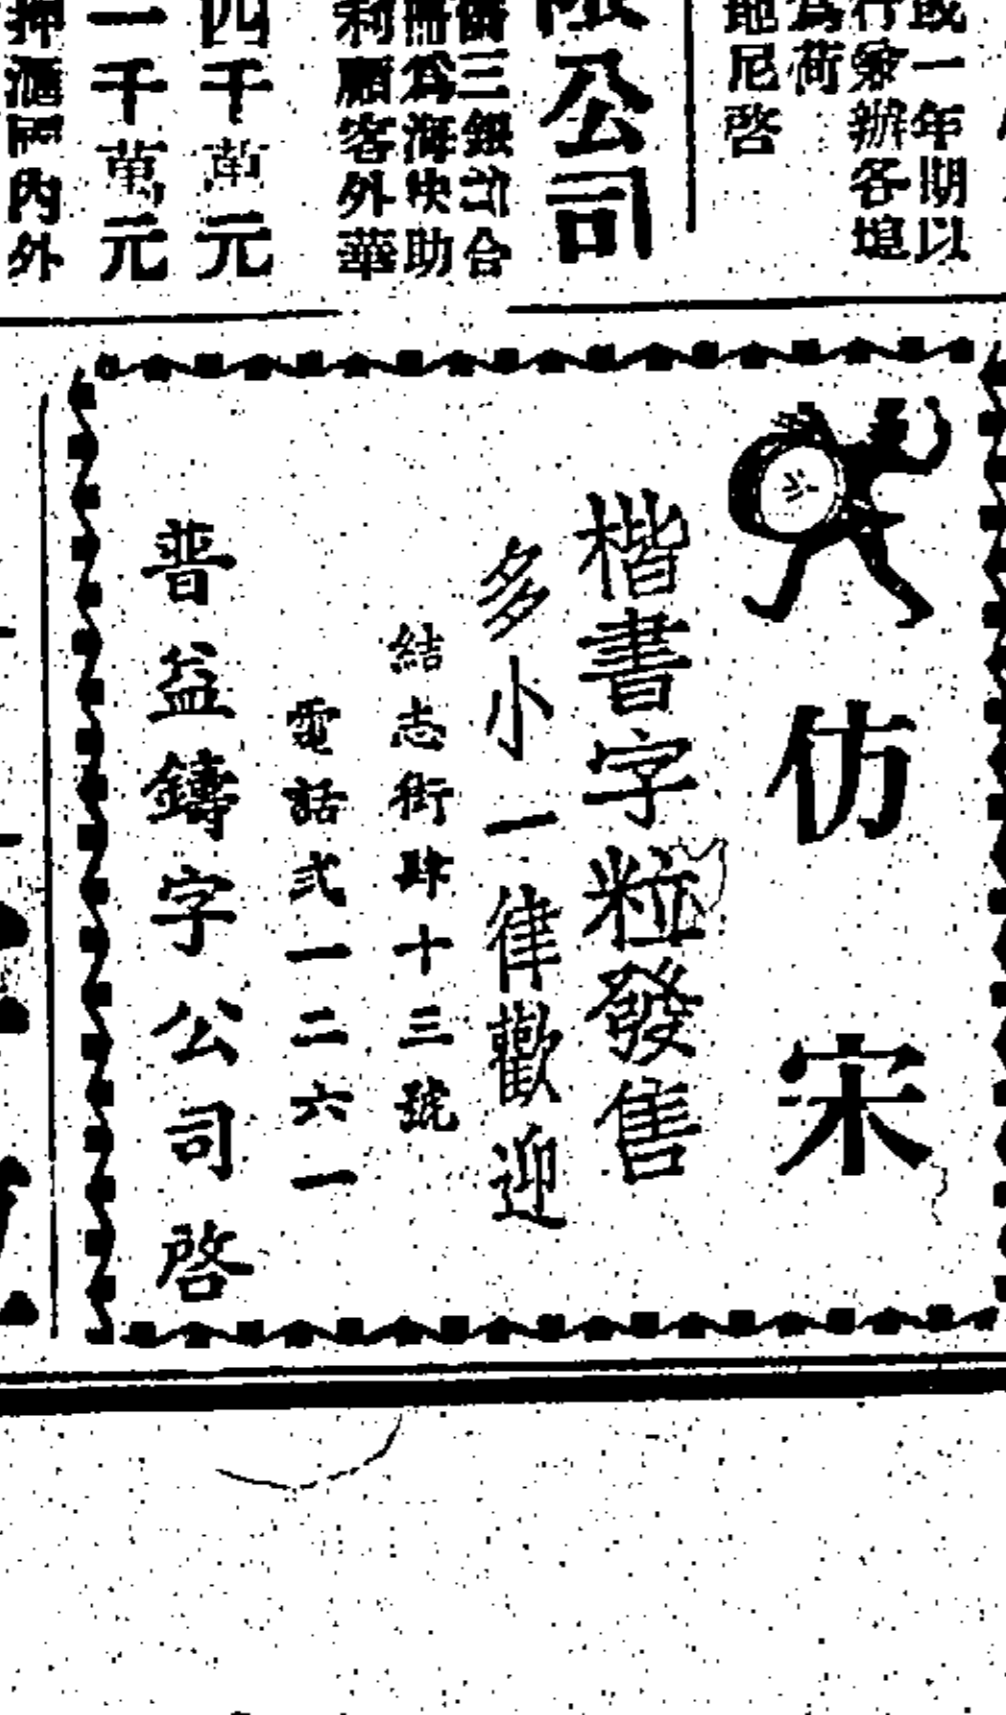 或一年期以
行彙辦各埠
為荷
地尼啓
限公司
三銀訂合
冊為海映助
利廳客外華
四千萬元
一千萬元
押滙國內外
仿宋
楷書字粒發售
多小一律歡迎
結志街肆十三號
電話弍一二六一
普益鑄字公司啓